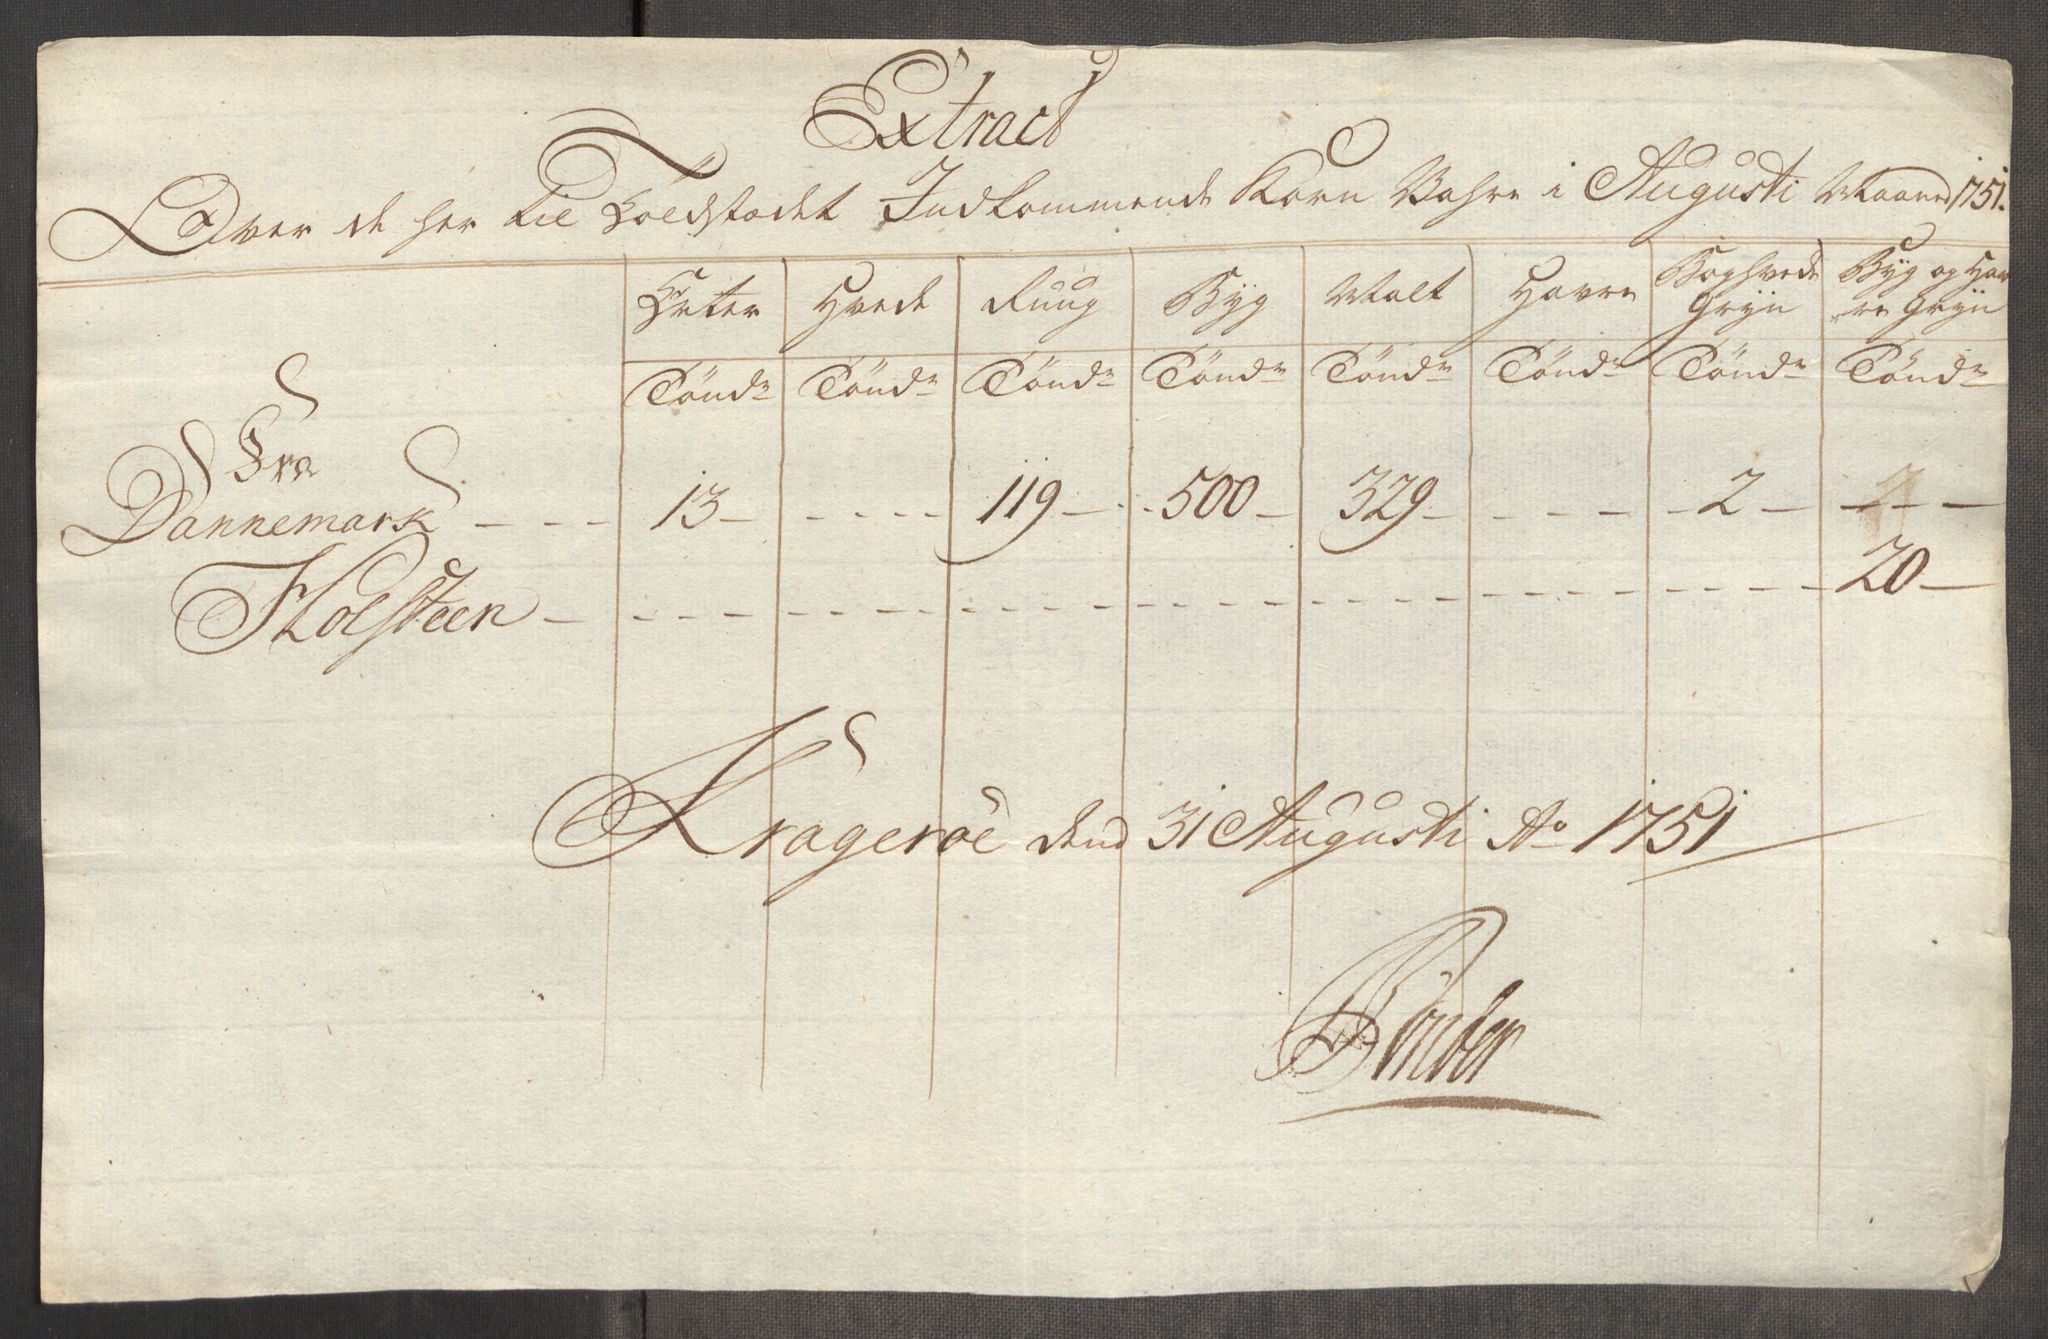 Extract
Over de her til Toldstædet Indkommende Korn Vahre i Augusti Maaned 1751.
Erter Hvede Ruug Byg Malt Havre Boghvede Gryn Byg og Hav re Gryn
Tönd Tönd Tönd Tönd Tönd Tönd Tönd Tönd
Fra
Dannemark - - - 13 - - - - - 119 - - - 500 - 329 - - - - - 2 - - - -
Holsteen - - - - - - - - - - - - - - - - - - - - - - 20 -
Krageröe dend 31 Augusti Ao 1751